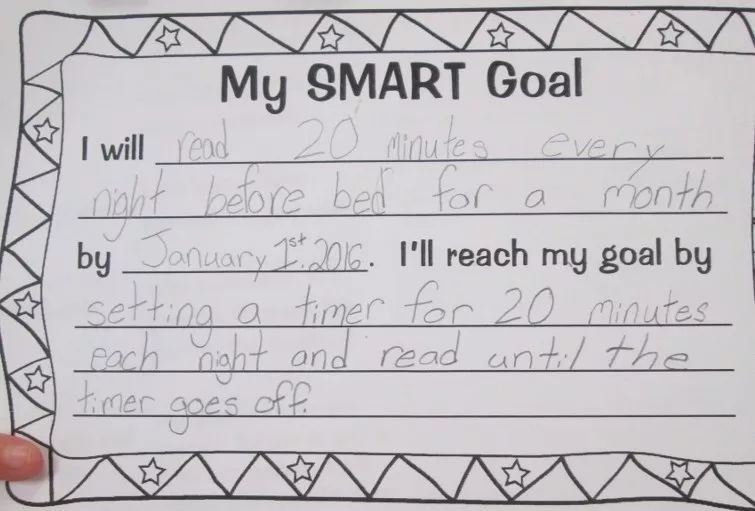 My SMART Goal
I will read 20 minutes every
night before bed for a month
by January 1st. 2016. I'll reach my goal by
setting a timer for 20 minutes
each night and read until the
timer goes off.